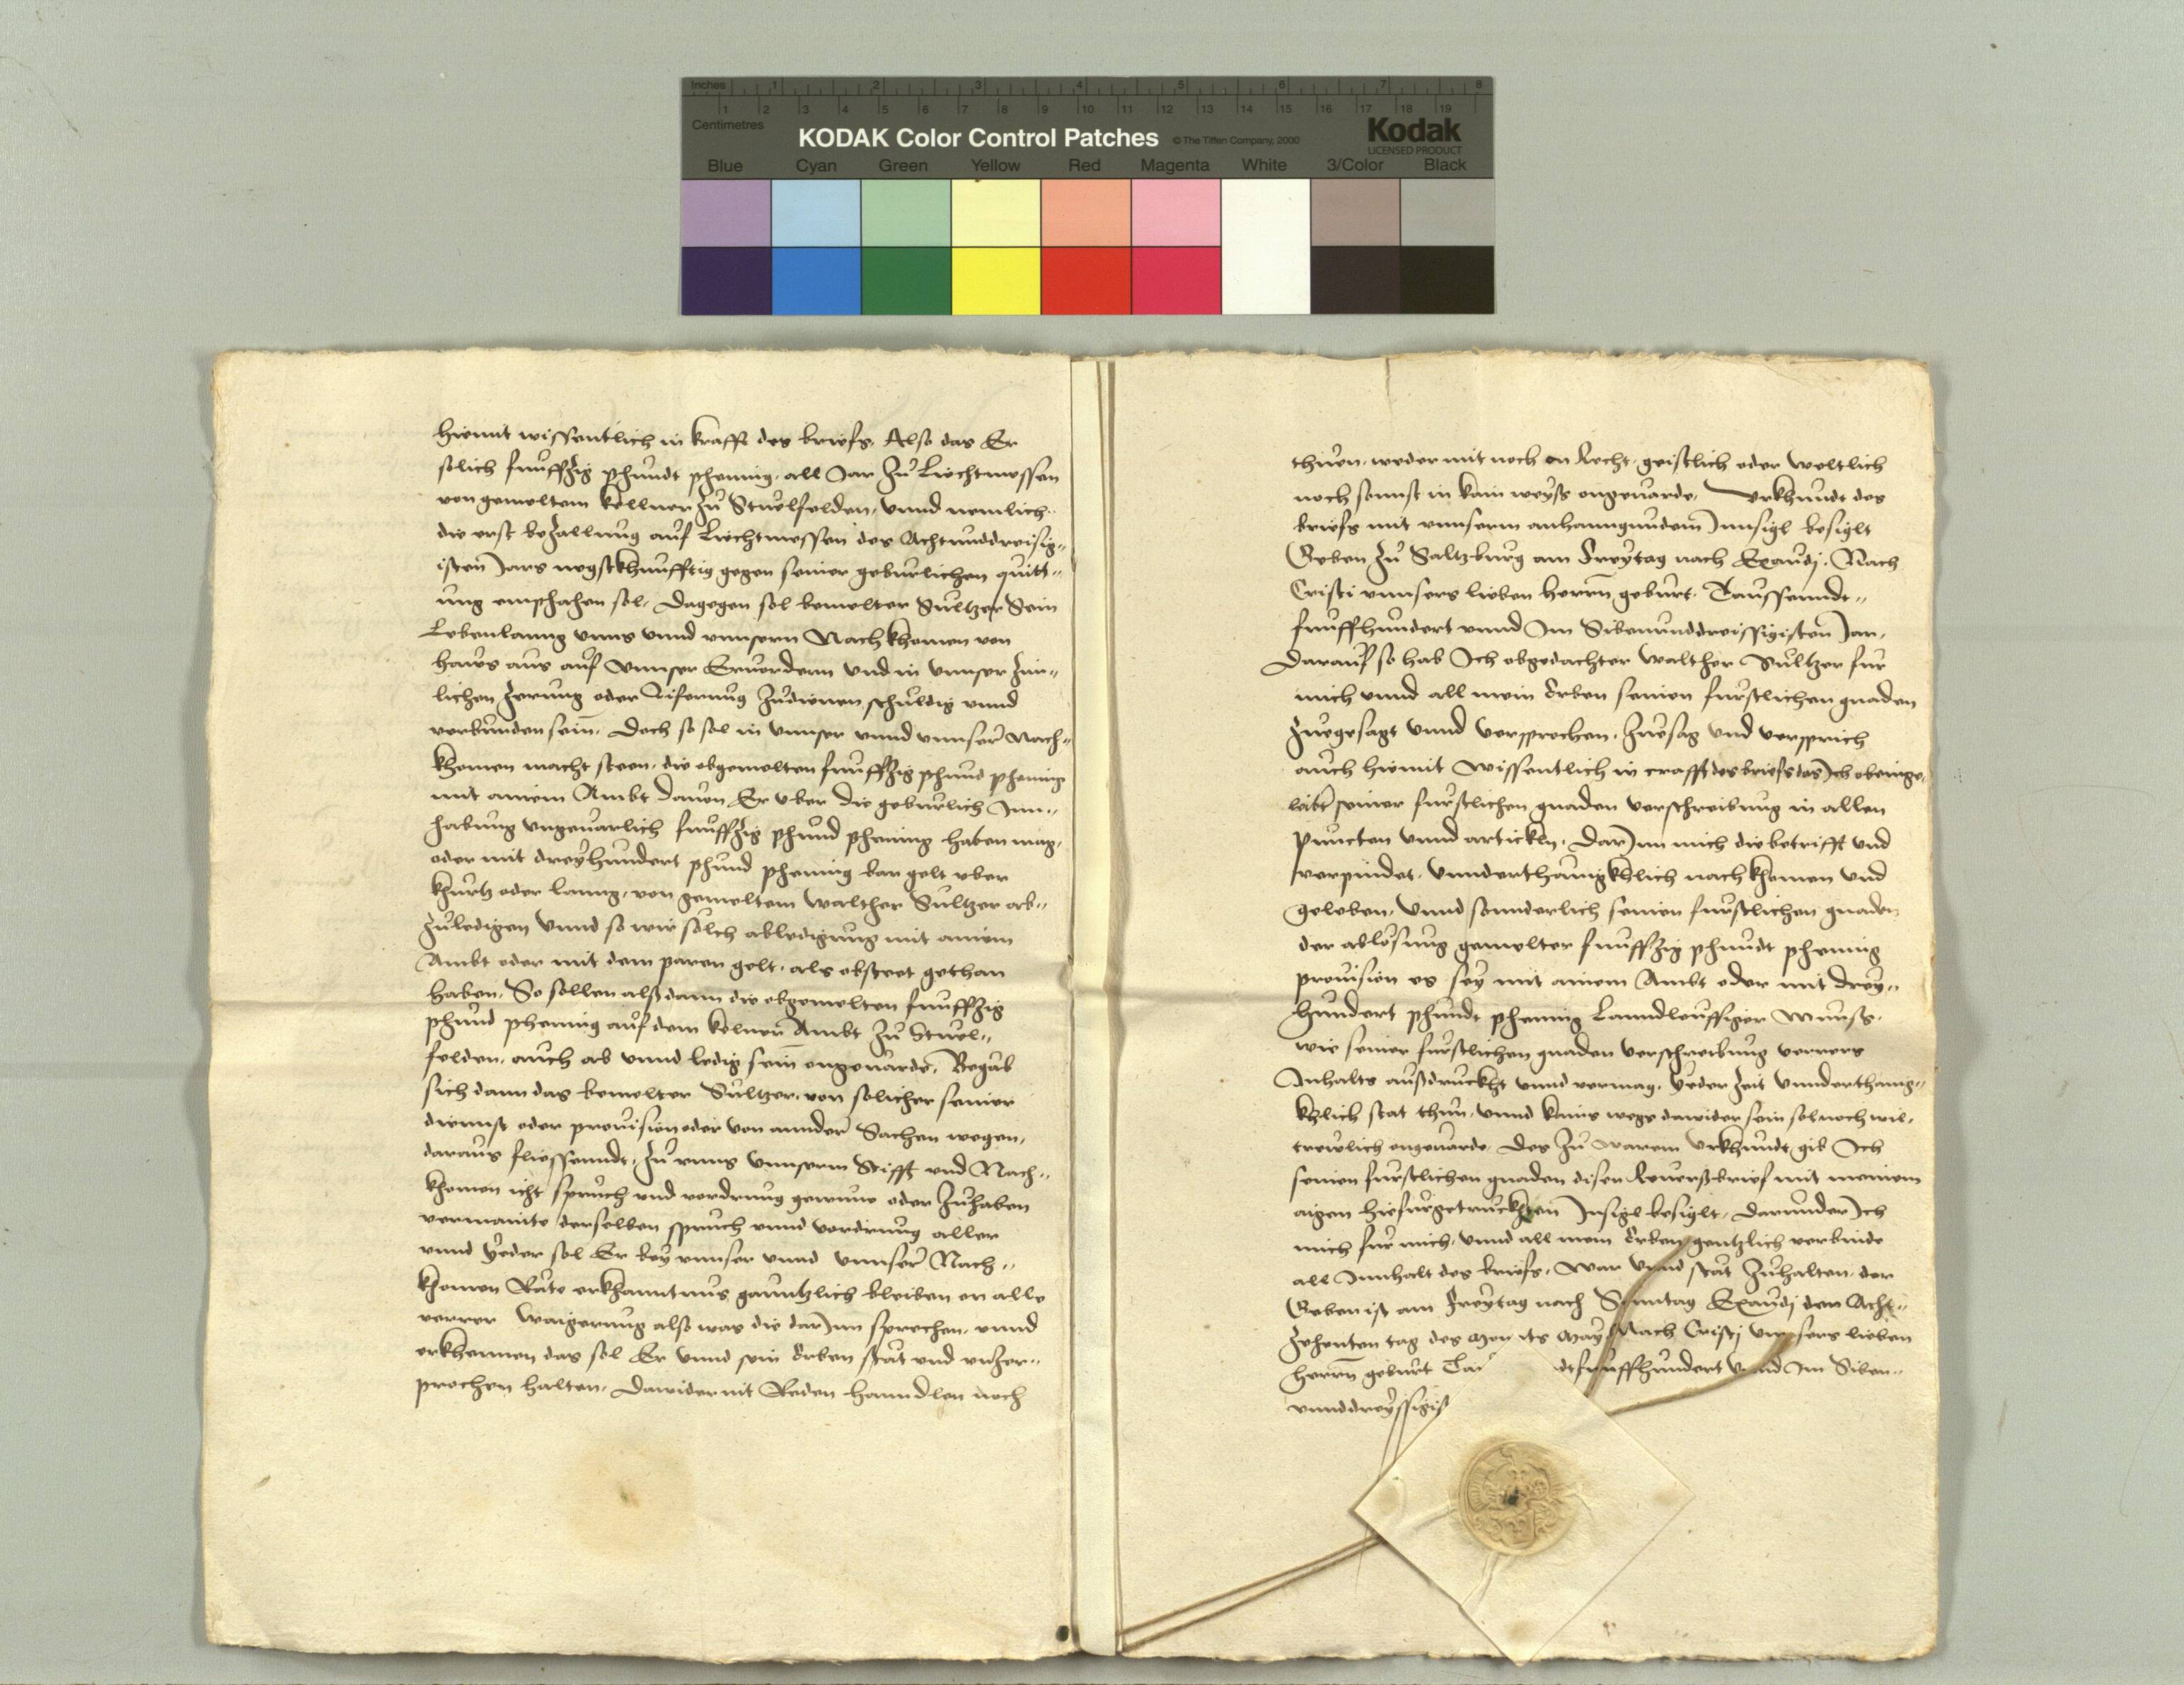 Inches 1 2 3 4 5 6 7 8
1 2 3 4 5 6 7 8 9 10 11 12 13 14 15 16 17 18 19
Centimetres
KODAK Color Control Patches © The Tiffen Company, 2000 Kodak
LICENSED PRODUCT
Blue Cyan Green Yellow Red Magenta White 3/Color Black
hiemit wissentlich in krafft des briefs. Also das Er
solich funffzig phundt phening, all Jar zu Liechtmessen
von gemeltem kellner zu Stuelfelden, vnnd nemlich
die erst bezallung auf Liechtmessen des Achtunddreisig„
isten Jars negstkhunfftig gegen seiner geburlichen quitt„
ung emphahen sol. Dagegen sol bemelter Sultzer Sein
Lebenlanng vnns vnnd vnnsern Nachkhomen von
haws aus auf vnnser Ervordern vnd in vnnser zim„
lichen zerung oder Lifernug zudienen schuldig vnnd
verbunden sein. Doch so sol in vnnser vnnd vnnser Nach„
khomen macht steen, die obgemelten funffzig phund phening
mit ainem Ambt dauon Er vber die geburlich Inn„
habung vngeuarlich funffzig phund phening haben mag,
oder mit dreyhundert phund phening bar gelt vber
khurtz oder lanng, von gemeltem Walther Sultzer ab„
zuledigen vnnd so wir solch abledigung mit ainem
Ambt oder mit dem paren gelt, als obsteet gethan
haben. So sollen alßdann die obgemelten funffzig
phund phening auf dem kelner Ambt zu Stuel„
felden, auch ab vnnd ledig sein ongeuarde. Begab
sich dann das bemelter Sultzer, von solicher seiner
diennst oder prouision oder von annder Sachen wegen,
daraus fliessenndt, zu vnns vnnserm Stifft vnd Nach„
khomen icht spruch vnd vordrung gewune oder zuhaben
vermainte derselben spruch vnnd vordrung aller
vnnd yeder sol Er bey vnnser vnnd vnnser Nach„
khomen Räte erkhanntnus ganntzlich bleiben on alle
verrer Waigerung also was die darInn sprechen, vnnd
erkhennen das sol Er vnnd sein Erben stät vnd vnzer„
prochen halten. Dawider nit Reden hanndlen noch
thuen, weder mit noch on Recht, geistlich oder weltlich
noch sonnst in kain weyss ongeuarde. Vrkhundt des
briefs mit vnnserm anhanngundem Innsigl besiglt
Geben zu Saltzburg am Freytag nach Exaudj. Nach
Cristi vnnsers lieben herrn geburt. Taussenndt„
funffhundert vnnd Im Sibenunddreissigisten Jar.
Darauf so hab Ich obgedachter Walther Sultzer fur
mich vnnd all mein Erben seinen furstlichen gnaden
zuegesagt vnnd versprochen, zuesag vnd versprich
auch hiemit wissentlich in crafft des briefs das Ich
seiner furstlichen gnaden verschreibung in allen
puncten vnnd artickln, darInn mich die betrifft vnd
verpindet, vnnderthänigkhlich nachkhomen vnd
geleben, vnnd sonnderlich seinen furstlichen gnaden
der ablosung gemelter funffzig phundt phening
prouision es sey mit ainem Ambt oder mit drey„
hundert phundt phening Lanndleuffiger Munss.
wie seiner furstlichen gnaden verschreibung verrers
Inhalts außdruckht vnnd vermag, yeder zeit vnnderthanig„
khlich stat thun, vnnd kains wegs dawider sein sol noch wil,
trewlich ongeuarde. Des zu warem Vrkhundt gib Ich
seinen furstlichen gnaden disen Reuerßbrief mit meinem
aigen hiefurgetruckhten Insigl besiglt. Darunder Ich
mich fur mich, vnnd all mein Erben gentzlich verbinde
all Innhalt des briefs, war vnnd stät zuhalten, der
Geben ist am Freytag nach Sonntag Exaudj den Acht„
zehenten tag des Monats May Nach Cristj vnnsers lieben
herrn geburt Tau dtfunffhundert vnnd Im Siben„
vnnddreyssigist